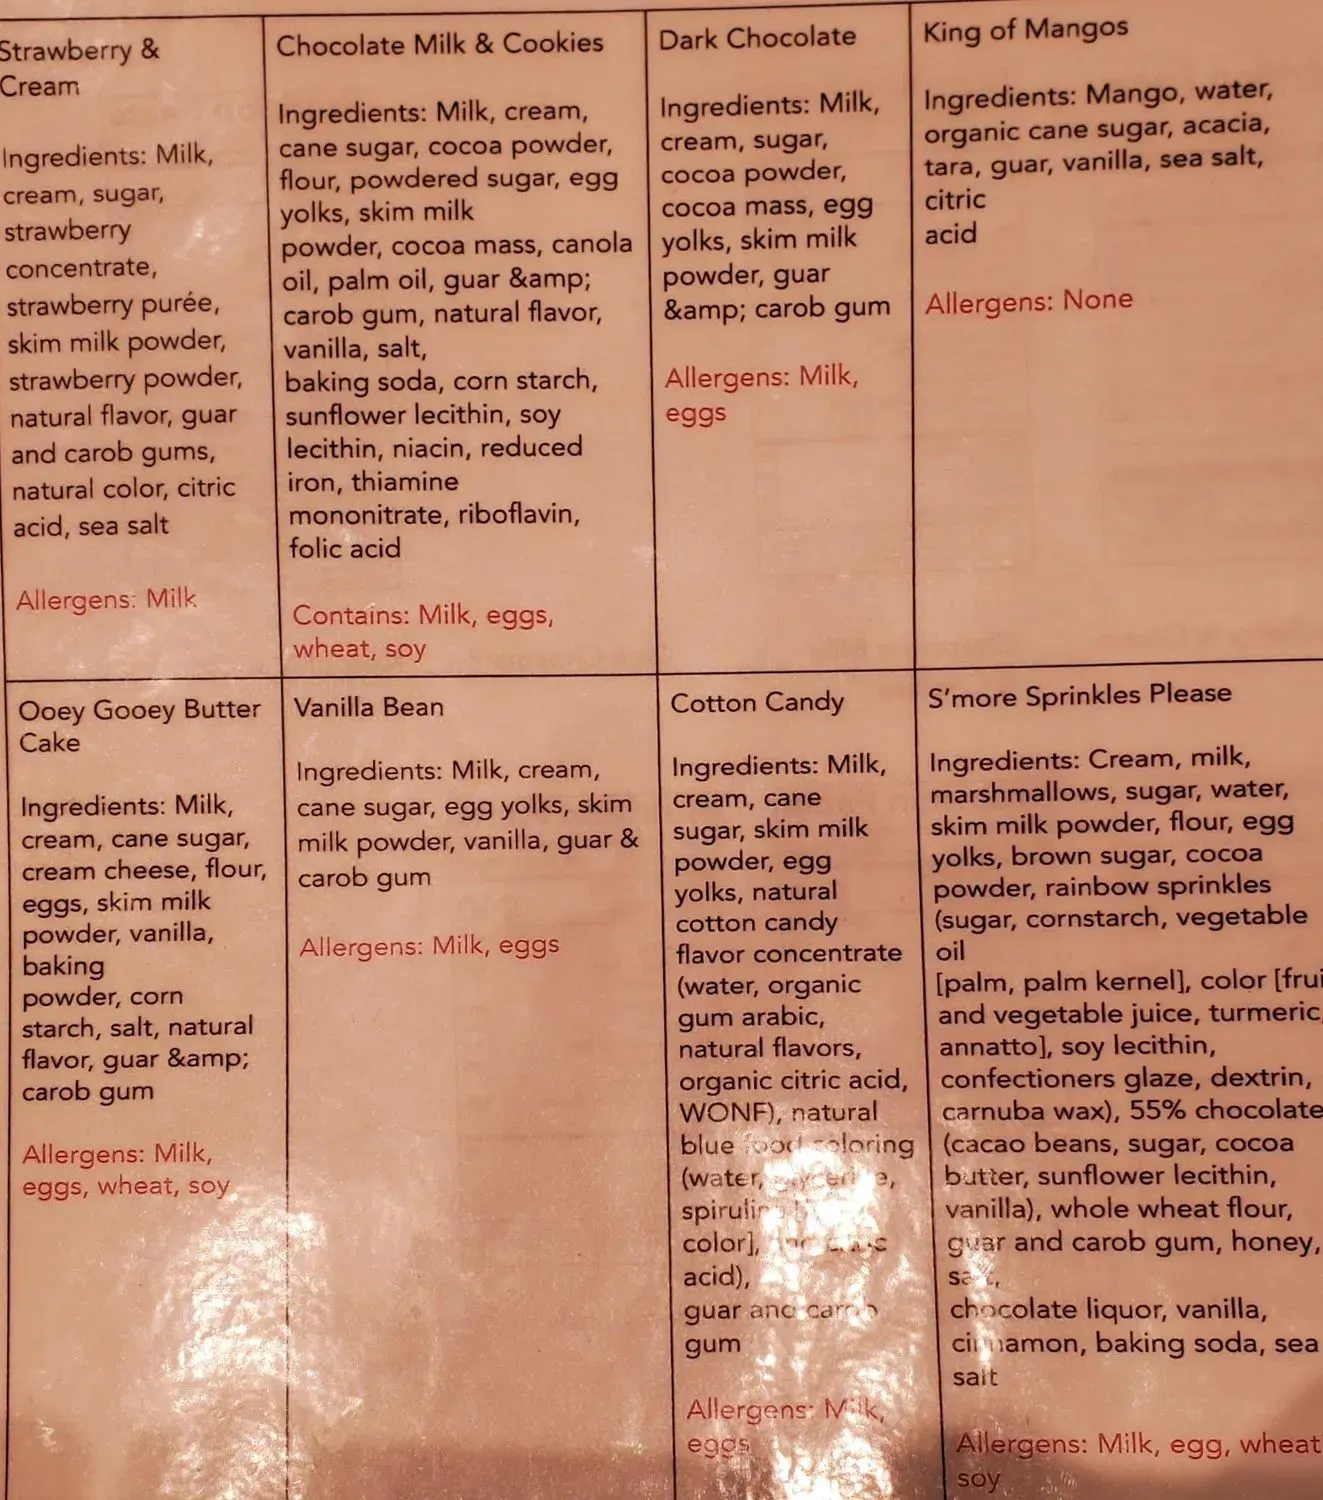 Strawberry &
Cream
Ingredients: Milk,
cream, sugar,
strawberry
concentrate,
strawberry purée,
skim milk powder,
strawberry powder,
natural flavor, guar
and carob gums,
natural color, citric
acid, sea salt
Allergens: Milk
Chocolate Milk & Cookies
Ingredients: Milk, cream,
cane sugar, cocoa powder,
flour, powdered sugar, egg
yolks, skim milk
powder, cocoa mass, canola
oil, palm oil, guar &amp;
carob gum, natural flavor,
vanilla, salt,
baking soda, corn starch,
sunflower lecithin, soy
lecithin, niacin, reduced
iron, thiamine
mononitrate, riboflavin,
folic acid
Contains: Milk, eggs,
wheat, soy
Dark Chocolate
Ingredients: Milk,
cream, sugar,
cocoa powder,
cocoa mass, egg
yolks, skim milk
powder, guar
&amp; carob gum
Allergens: Milk,
eggs
King of Mangos
Ingredients: Mango, water,
organic cane sugar, acacia,
tara, guar, vanilla, sea salt,
citric
acid
Allergens: None
Ooey Gooey Butter
Cake
Ingredients: Milk,
cream, cane sugar,
cream cheese, flour,
eggs, skim milk
powder, vanilla,
baking
powder, corn
starch, salt, natural
flavor, guar &amp;
carob gum
Allergens: Milk,
eggs, wheat, soy
Vanilla Bean
Ingredients: Milk, cream,
cane sugar, egg yolks, skim
milk powder, vanilla, guar &
carob gum
Allergens: Milk, eggs
Cotton Candy
Ingredients: Milk,
cream, cane
sugar, skim milk
powder, egg
yolks, natural
cotton candy
flavor concentrate
(water, organic
gum arabic,
natural flavors,
organic citric acid,
WONF), natural
blue food coloring
(water,
color],
acid),
guar and carob
gum
Allergens: Milk,
eggs
S'more Sprinkles Please
Ingredients: Cream, milk,
marshmallows, sugar, water,
skim milk powder, flour, egg
yolks, brown sugar, cocoa
powder, rainbow sprinkles
(sugar, cornstarch, vegetable
oil
[palm, palm kernel], color [frui
and vegetable juice, turmeric,
annatto], soy lecithin,
confectioners glaze, dextrin,
carnuba wax), 55% chocolate
(cacao beans, sugar, cocoa
butter, sunflower lecithin,
vanilla), whole wheat flour,
guar and carob gum, honey,
salt,
chocolate liquor, vanilla,
cinnamon, baking soda, sea
salt
Allergens: Milk, egg, wheat
soy